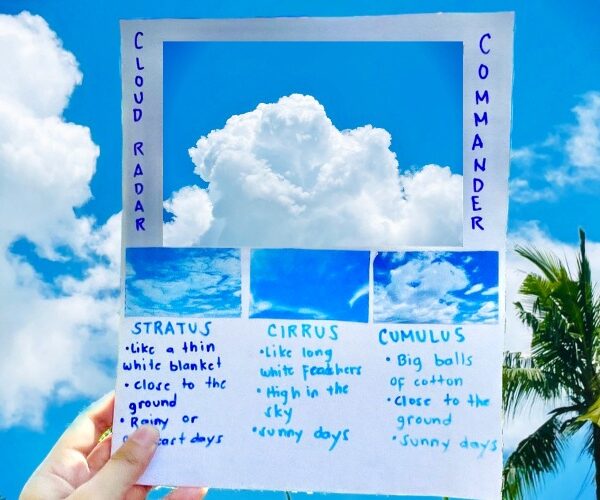 CLOUD RADAR
COMMANDER
STRATUS
• Like a thin
white blanket
• close to the
ground
• Rainy or
cast days
CIRRUS
• Like long
white feathers
• High in the
sky
• sunny days
CUMULUS
• Big balls
of cotton
• close to the
ground
• sunny days